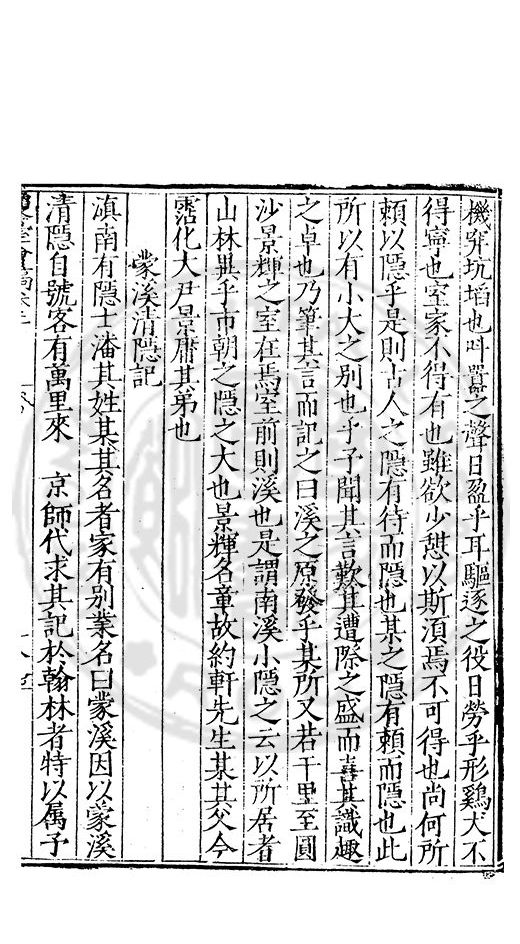 機穽坑塪也呌囂之聲日盈乎耳驅逐之役日勞乎形雞犬不
得寧也室家不得有也雖欲少憇以斯湏焉不可得也尚何所
頼以隱乎是則古人之隱有待而隱也某之隱有頼而隱也此
所以有小大之别也乎予聞其言歎其遭際之盛而喜其識趣
之卓也乃筆其言而記之曰溪之原發乎某所又若干里至圓
沙景輝之室在焉室前則溪也是謂南溪小隱之云以所居者
山林異乎市朝之隱之大也景輝名童故約軒先生某其父今
霑化大尹景庸其弟也
蒙溪清隱記
滇南有隱士潘其姓某其名者家有别業名曰蒙溪因以蒙溪
清隱自號客有萬里來 京師代求其記於翰林者特以属予